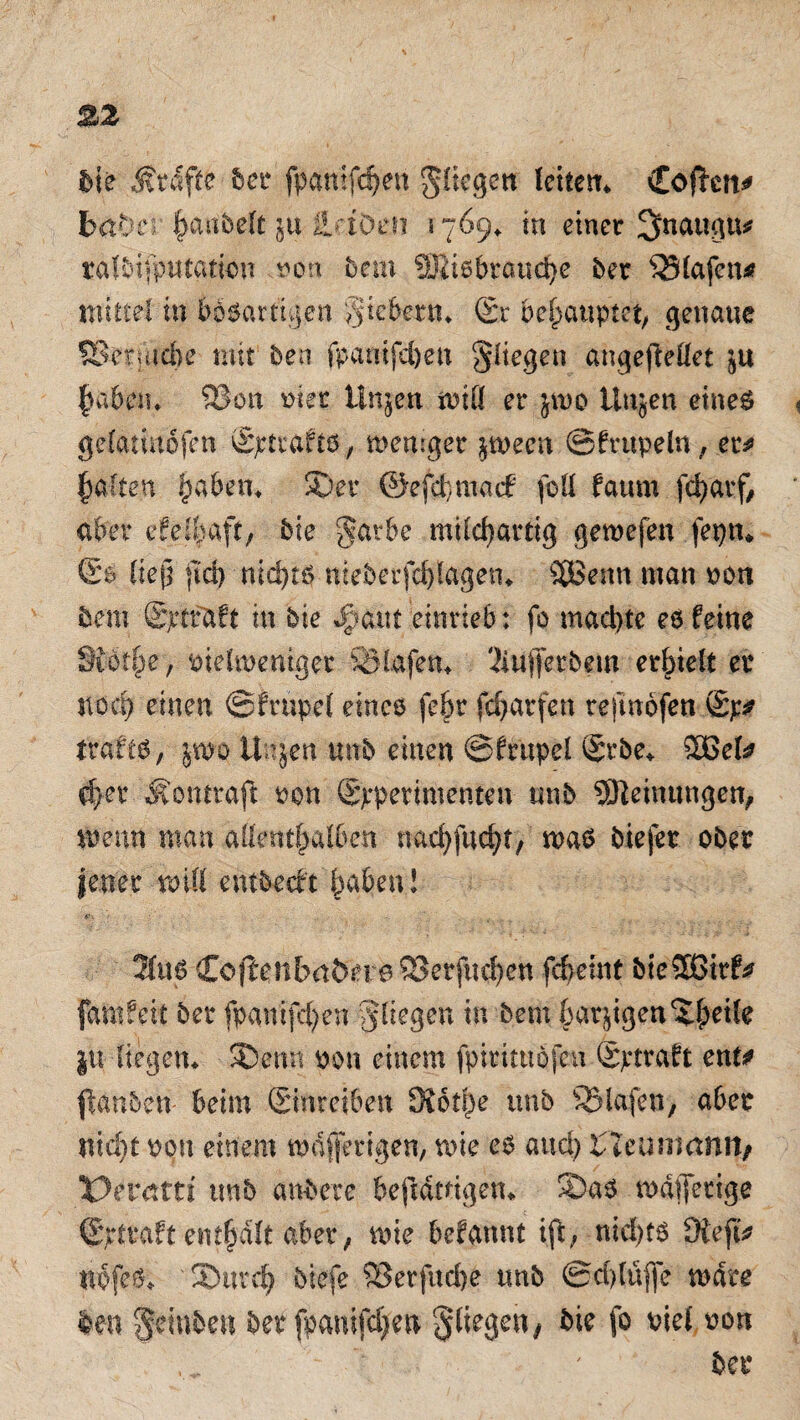 22
die Kräfte der spanischen Fliegen leiten. Costen-
bader handelt zu Leiden 1769. in einer Inaugu-
raldisputation von dem Misbrauche der Blasen-
mittel in bösartigen Fiebern. Er behauptet, genaue
Versuche mit den spanischen Fliegen angestellet zu
haben. Von vier Unzen will er zwo Unzen eines
gelatinösen Extrakts, weniger zween Skrupeln, er-
halten haben. Der Geschmack soll kaum scharf,
aber ekelhaft, die Farbe milchartig gewesen seyn.
Es ließ sich nichts niederschlagen. Wenn man von
dem Extrakt in die Haut einrieb: so machte es keine
Röthe, vielweniger Blasen. Ausserdem erhielt er
noch einen Skrupel eines sehr scharfen resinösen Ex-
trakts, zwo Unzen und einen Skrupel Erde. Wel-
cher Kontrast von Experimenten und Meinungen,
wenn man allenthalben nachsucht, was dieser oder
jener will entdeckt haben!
Aus Costenbaders Versuchen scheint die Wirk-
samkeit der spanischen Fliegen in dem harzigen Theile
zu liegen. Denn von einem spirituösen Extrakt ent-
standen beim Einreiben Röthe und Blasen, aber
nicht von einem wässerigen, wie es auch Neumann,
Veratti und andere bestättigen. Das wässerige
Extrakt enthält aber, wie bekannt ist, nichts Resi-
nöses. Durch diese Versuche und Schlüsse wäre
den Feinden der spanischen Fliegen, die so viel von
der